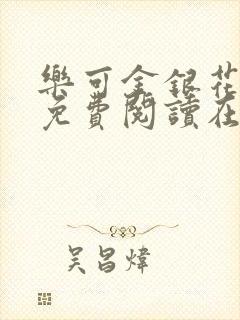 樂可金銀花
免費閱讀在
吳昌煒